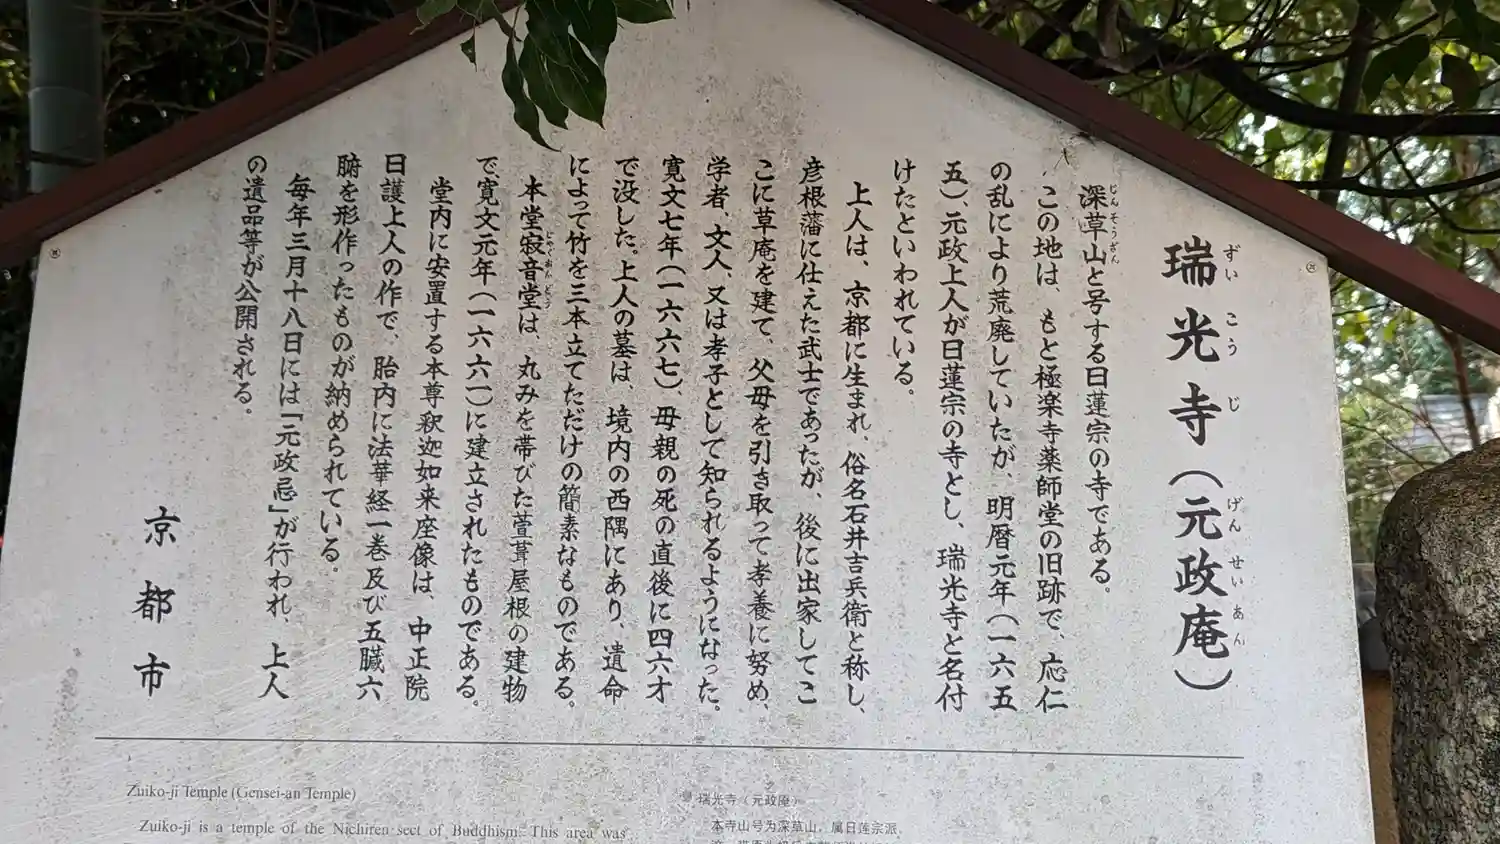 瑞光寺(元政庵)
ずいこうじ げんせいあん
深草山と号する日蓮宗の寺である。
じんそうざん
この地は、もと極楽寺薬師堂の旧跡で、応仁
の乱により荒廃していたが、明暦元年(一六五
五)、元政上人が日蓮宗の寺とし、瑞光寺と名付
けたといわれている。
上人は、京都に生まれ、俗名石井吉兵衛と称し、
彦根藩に仕えた武士であったが、後に出家してこ
こに草庵を建て、父母を引き取って孝養に努め、
学者、文人、又は孝子として知られるようになった。
寛文七年(一六六七)、母親の死の直後に四六才
で没した。上人の墓は、境内の西隅にあり、遺命
によって竹を三本立てただけの簡素なものである。
本堂寂音堂は、丸みを帯びた萱葺屋根の建物
じゃくおんどう
で、寛文元年(一六六一)に建立されたものである。
堂内に安置する本尊釈迦如来座像は、中正院
日護上人の作で、胎内に法華経一巻及び五臓六
腑を形作ったものが納められている。
毎年三月十八日には「元政忌」が行われ、上人
の遺品等が公開される。
京都市
Zuiko-ji Temple (Gensei-an Temple)
Zuiko-ji is a temple of the Nichiren sect of Buddhism. This area was
瑞光寺（元政庵）
本寺山号为深草山，属日莲宗派，